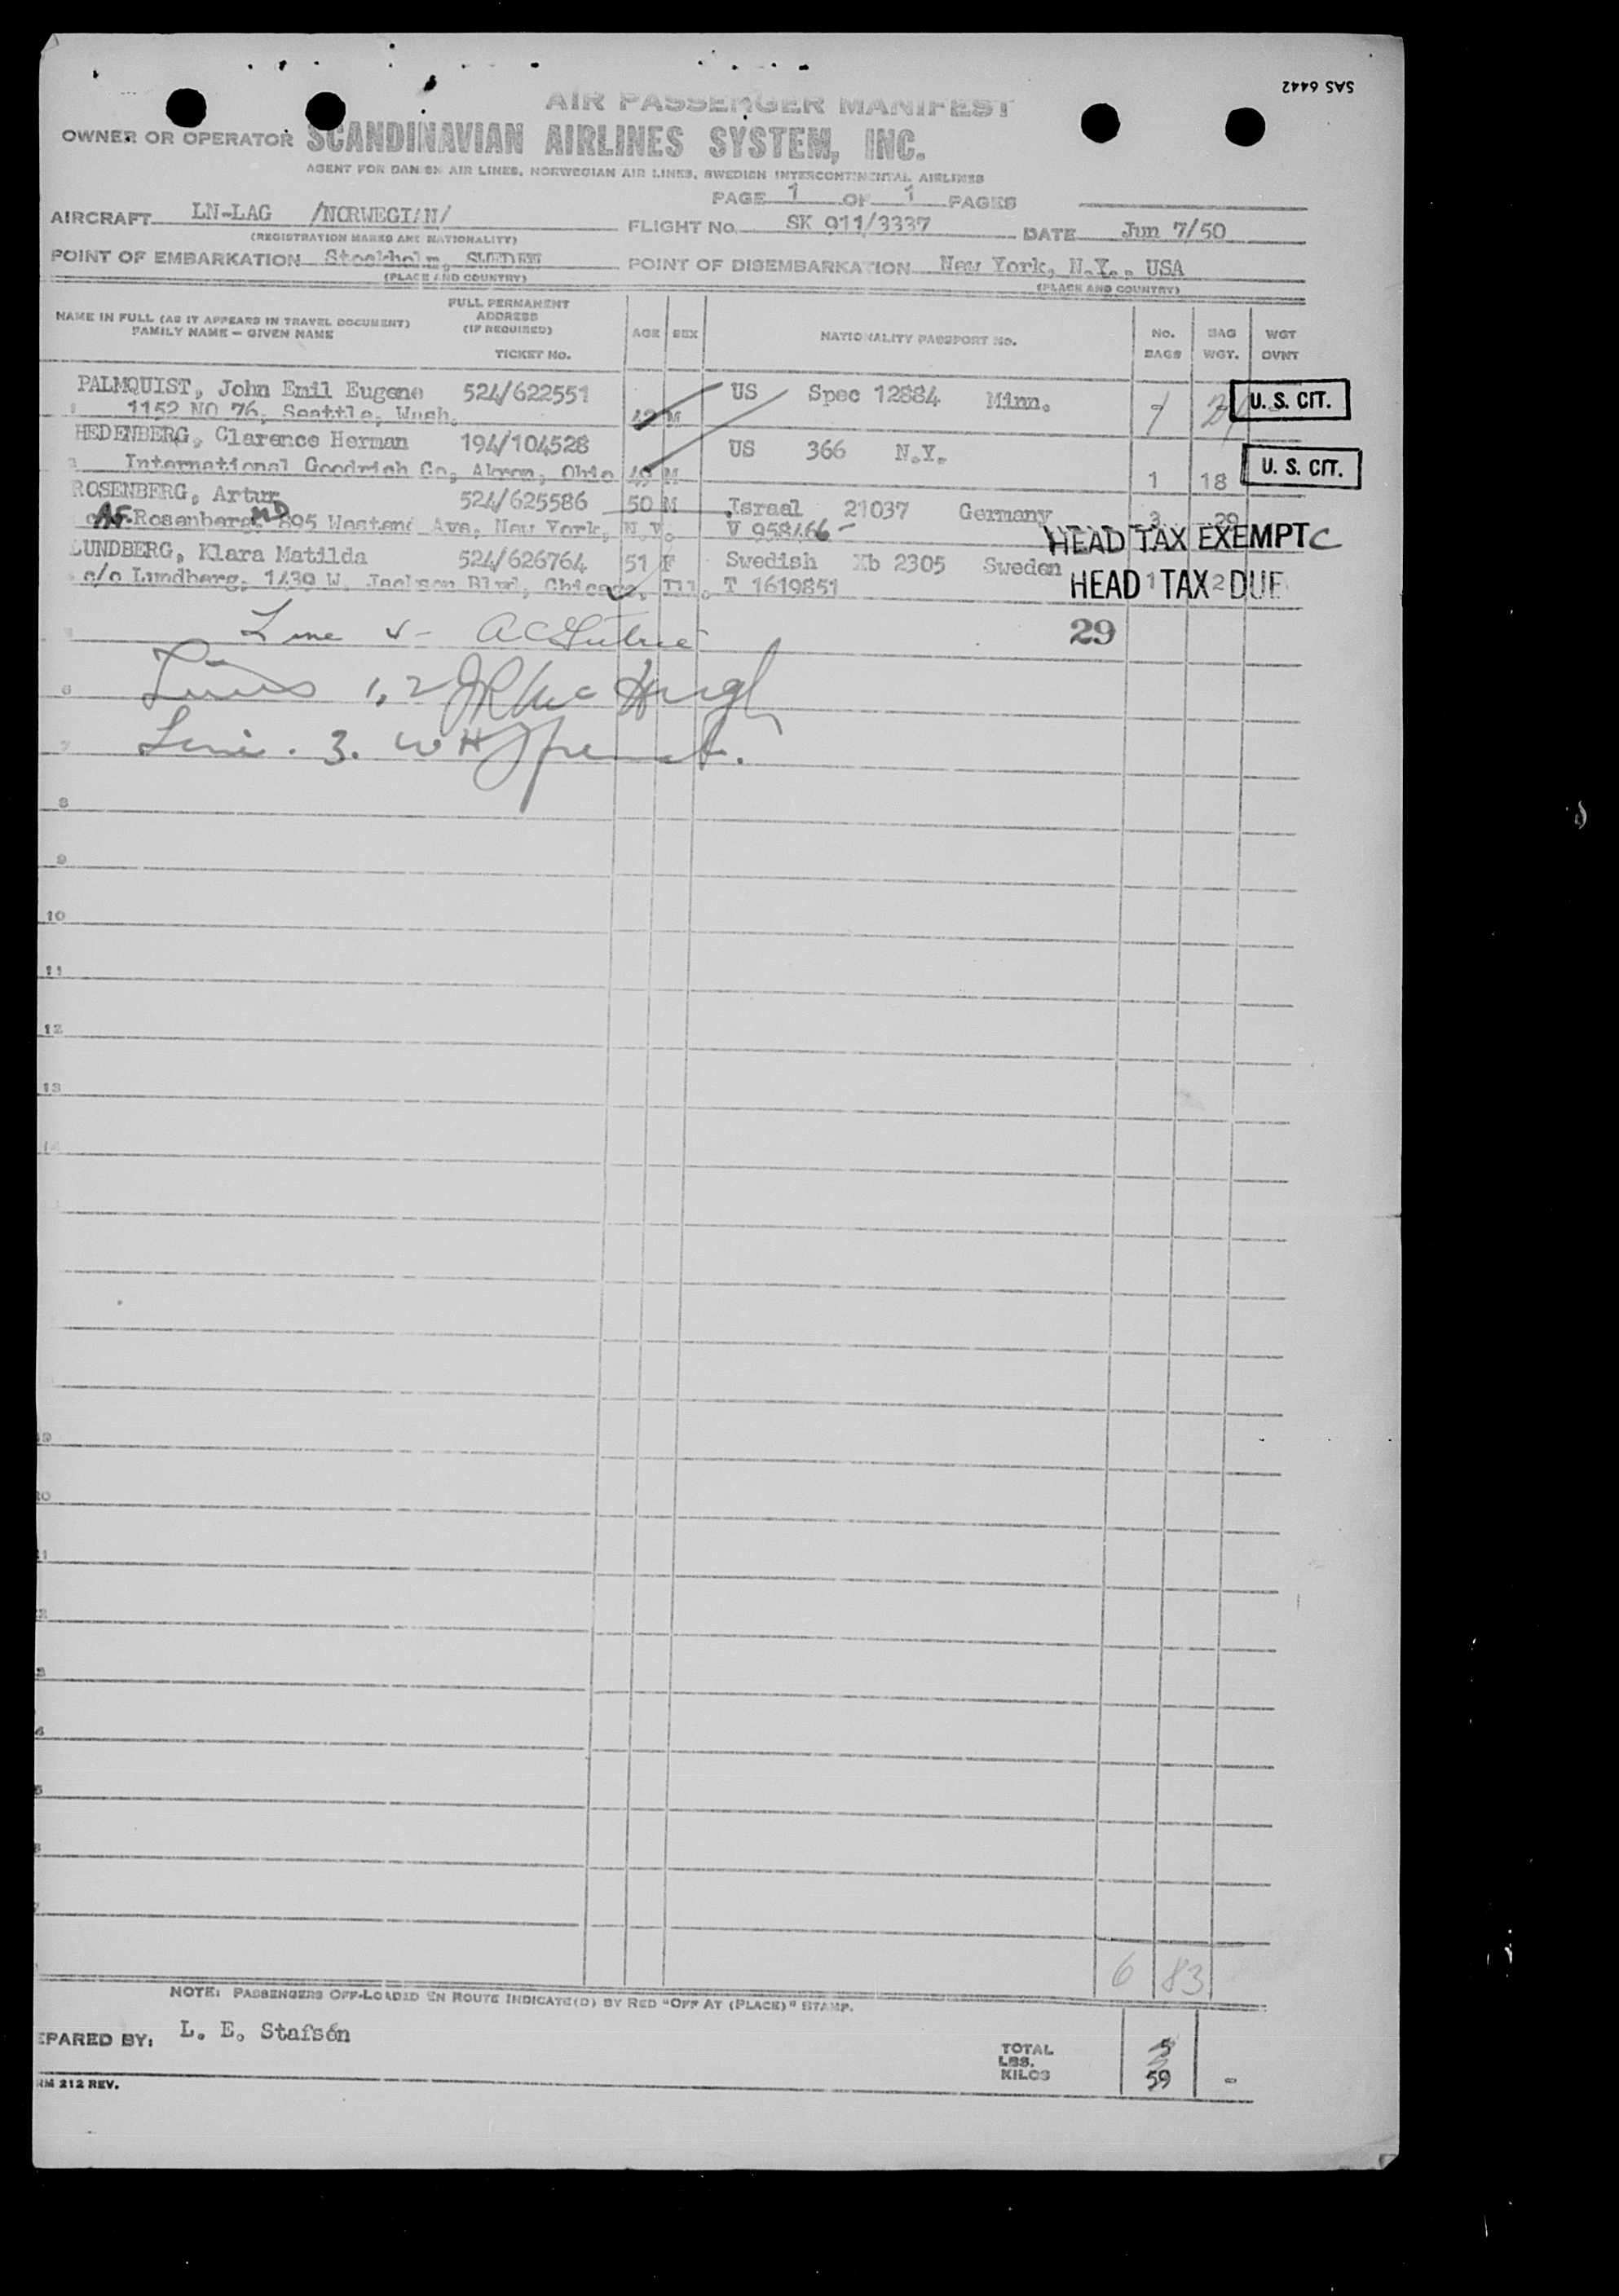 SAS 6442
AIR PASSENGER MANIFEST
OWNER OR OPERATOR SCANDINAVIAN AIRLINES SYSTEM, INC.
AGENT FOR DANISH AIR LINES, NORWEGIAN AIR LINES, SWEDISH INTERCONTINENTAL AIRLINES
PAGE 1 OF 1 PAGES
AIRCRAFT LN-LAG /NORWEGIAN/ FLIGHT No. SK 911/3337 DATE Jun 7/50
(REGISTRATION MARKS AND NATIONALITY)
POINT OF EMBARKATION Stockholm, SWEDEN POINT OF DISEMBARKATION New York, N.Y., USA
(PLACE AND COUNTRY) (PLACE AND COUNTRY)
NAME IN FULL (AS IT APPEARS IN TRAVEL DOCUMENT) FAMILY NAME – GIVEN NAME
FULL PERMANENT ADDRESS (IF REQUIRED) TICKET No.
AGE SEX NATIONALITY PASSPORT No. No. BAGS BAG WGT. WGT OVNT
PALMQUIST, John Emil Eugene 524/622551 US Spec 12884 Minn. U. S. CIT.
1152 NO 76, Seattle, Wash. M 1
HEDENBERG, Clarence Herman 194/104528 US 366 N.Y. U. S. CIT.
International Goodrich Co, Akron, Ohio M 1 18
ROSENBERG, Artur 524/625586 50 M Israel 21037 Germany 3 29
Rosenberg, MD 895 Westend Ave, New York, N.Y. V 958466 HEAD TAX EXEMPT C
LUNDBERG, Klara Matilda 524/626764 51 F Swedish Xb 2305 Sweden
c/o Lundberg, 1439 W. Jackson Blvd, Chicago, Ill. T 1619851 HEAD TAX DUE 1 2
Line 4 - 29
6 Lines 1, 2 JR McHugh
7 Line. 3. WH
8
9
10
11
12
13
14
6 83
NOTE: PASSENGERS OFF-LOADED EN ROUTE INDICATE(D) BY RED "OFF AT (PLACE)" STAMP.
EPARED BY: L. E. Stafsén
TOTAL 5
LBS.
KILOS 59 -
RM 212 REV.